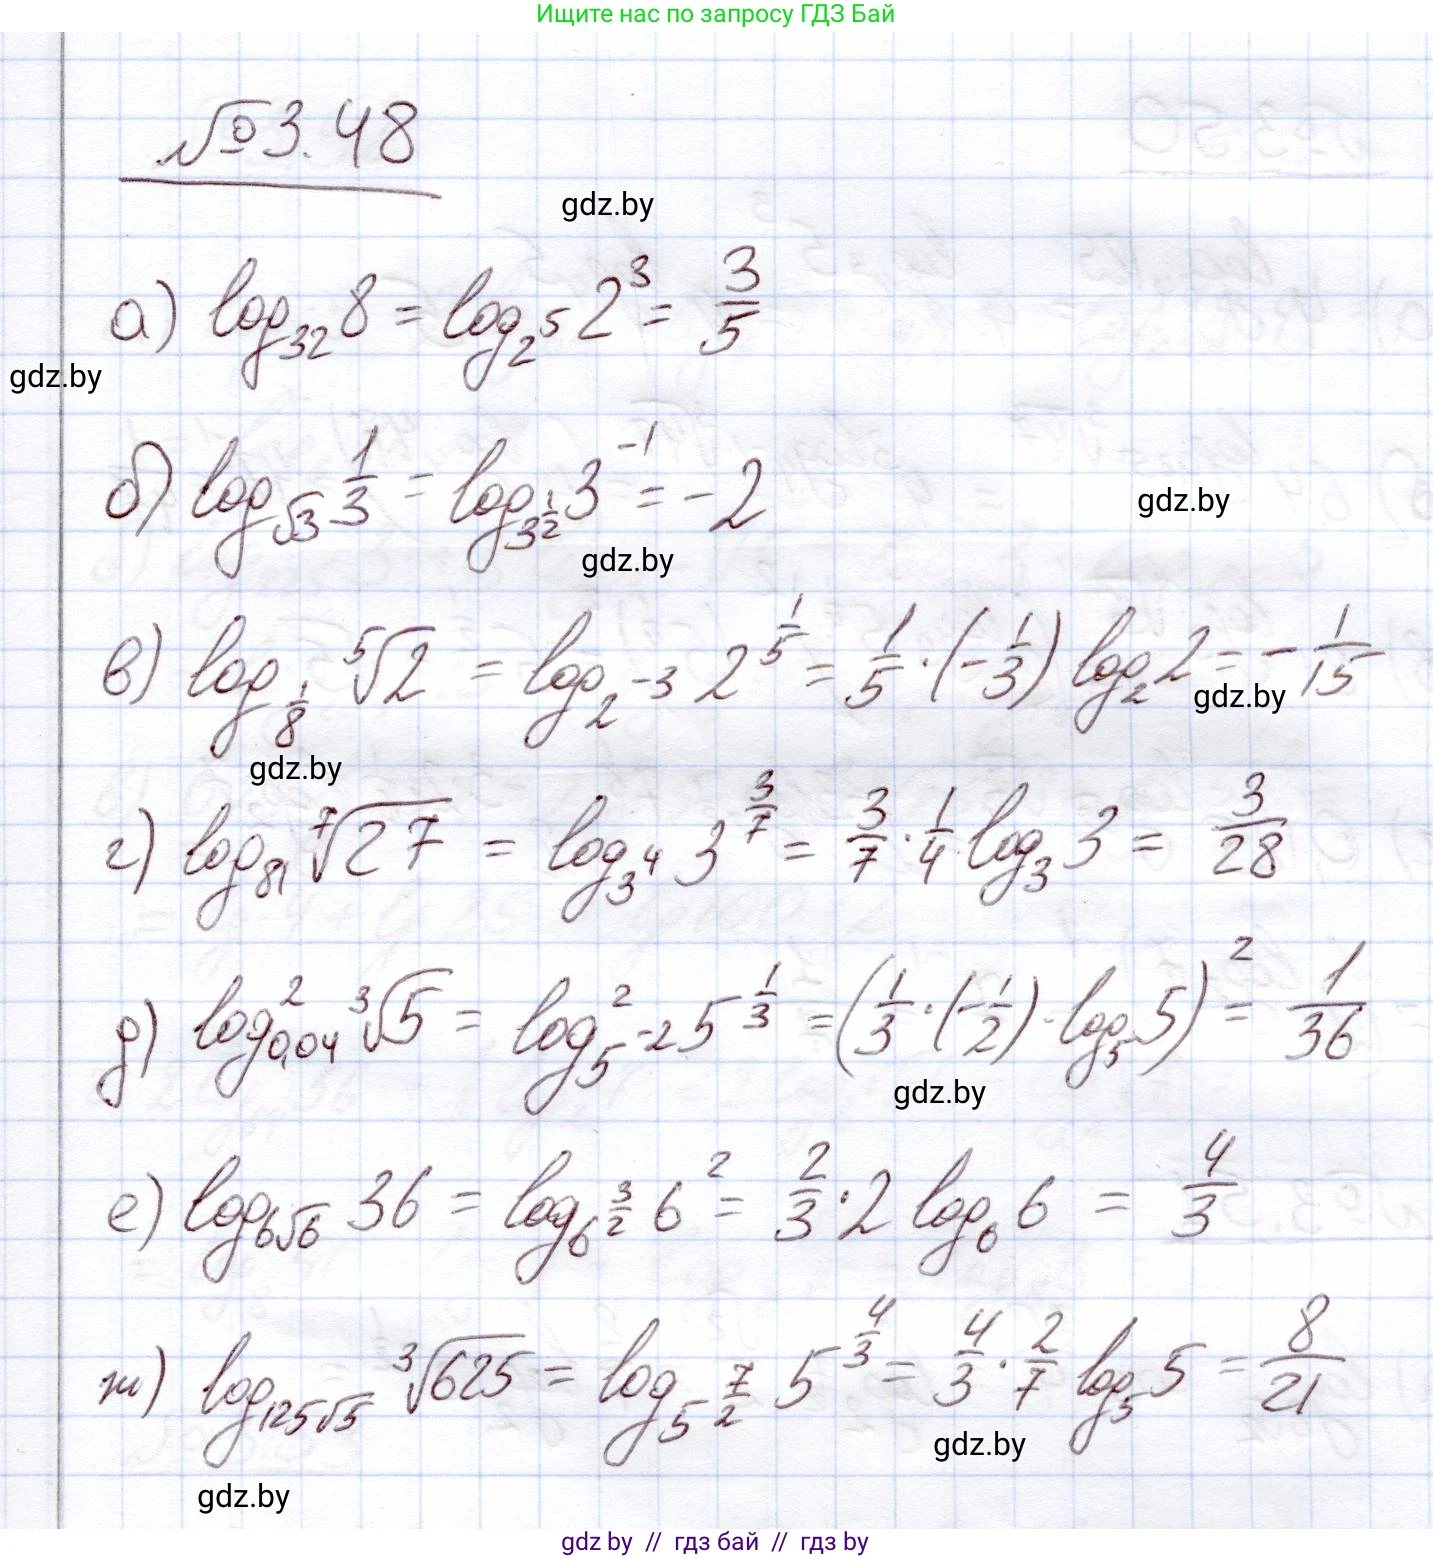 Ищите нас по запросу ГДЗ Бай
№3.48
gdz.by
а) log₃₂ 8 = log_{2^5} 2^3 = 3/5
gdz.by
б) log_{√3} 1/3 = log_{3^{1/2}} 3^{-1} = -2
gdz.by
gdz.by
в) log_{1/8} ⁵√2 = log_{2^{-3}} 2^{1/5} = 1/5 · (-1/3) log₂ 2 = -1/15
gdz.by
gdz.by
г) log₈₁ ⁷√27 = log_{3^4} 3^{3/7} = 3/7 · 1/4 log₃ 3 = 3/28
д) log²_{0,04} ³√5 = log²_{5^{-2}} 5^{1/3} = (1/3 · (-1/2) · log₅ 5)² = 1/36
gdz.by
е) log_{6√6} 36 = log_{6^{3/2}} 6² = 2/3 · 2 log₆ 6 = 4/3
ж) log_{125√5} ³√625 = log_{5^{7/2}} 5^{4/3} = 4/3 · 2/7 log₅ 5 = 8/21
gdz.by
gdz.by
gdz by // гдз бай // гдз by